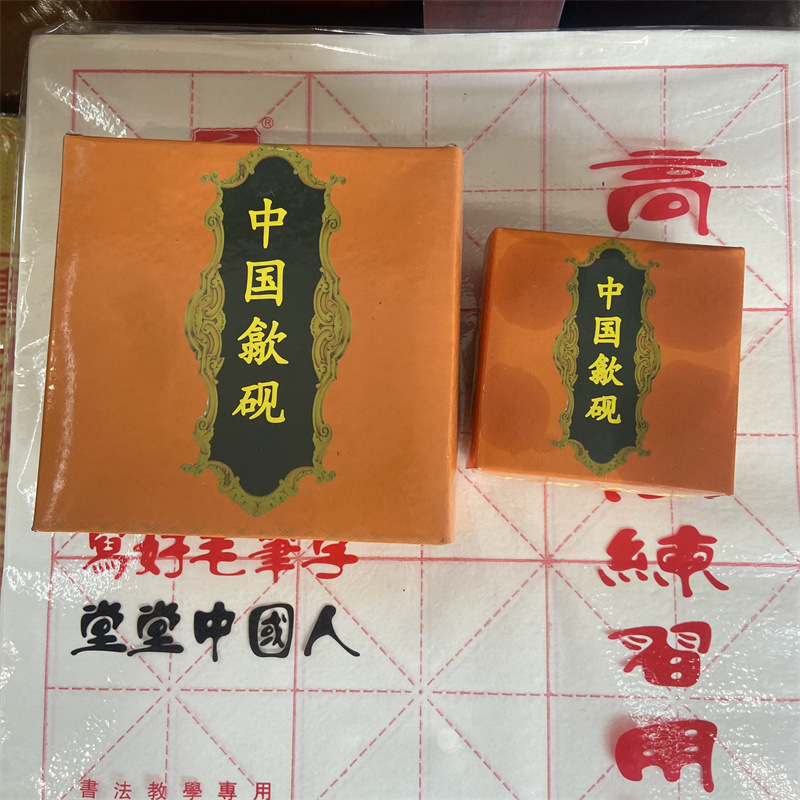 ®
中国歙砚
中国歙砚
高
練習用
寫好毛筆字
堂堂中國人
書法教學專用